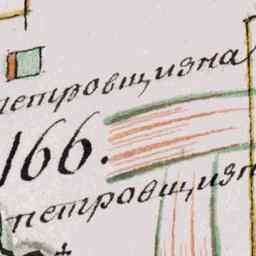 петровщизна
166.
петровщизн